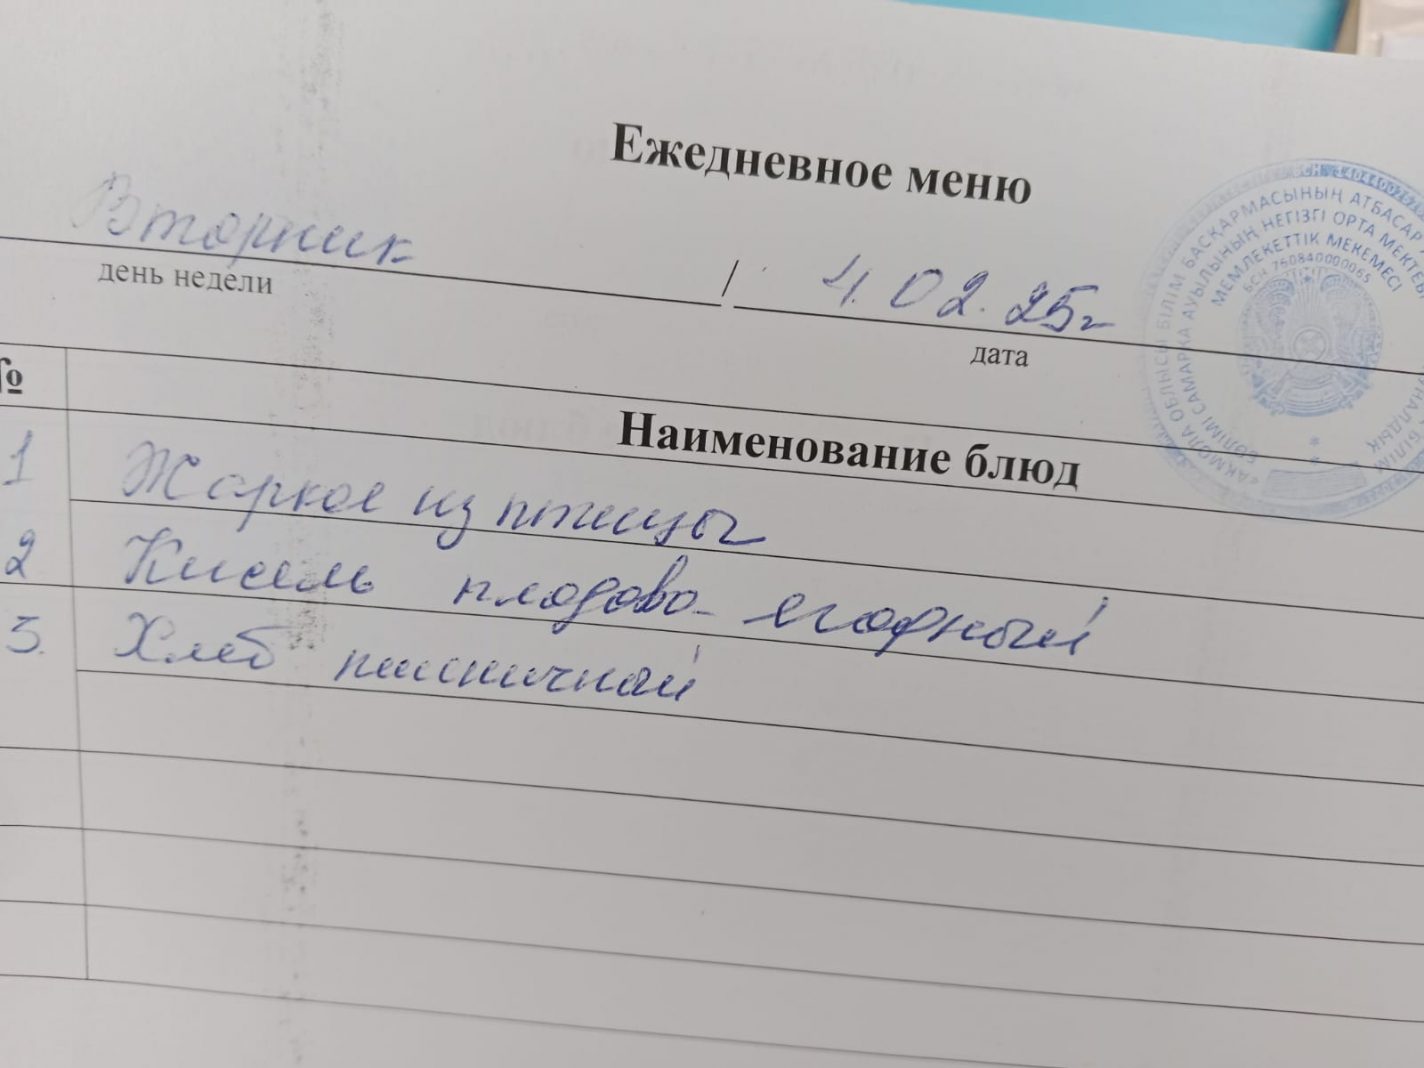 Ежедневное меню
Вторник / 4.02.25г
день недели
дата
№
Наименование блюд
1 Жаркое из птицы
2 Кисель плодово-ягодный
3. Хлеб пшеничный
БАСҚАРМАСЫНЫҢ АТБАСАР
АҚМОЛА ОБЛЫСЫ БІЛІМ
САМАРҚА АУЫЛЫНЫҢ НЕГІЗГІ ОРТА МЕКТЕБІ
МЕМЛЕКЕТТІК МЕКЕМЕСІ
БСН 760840000065